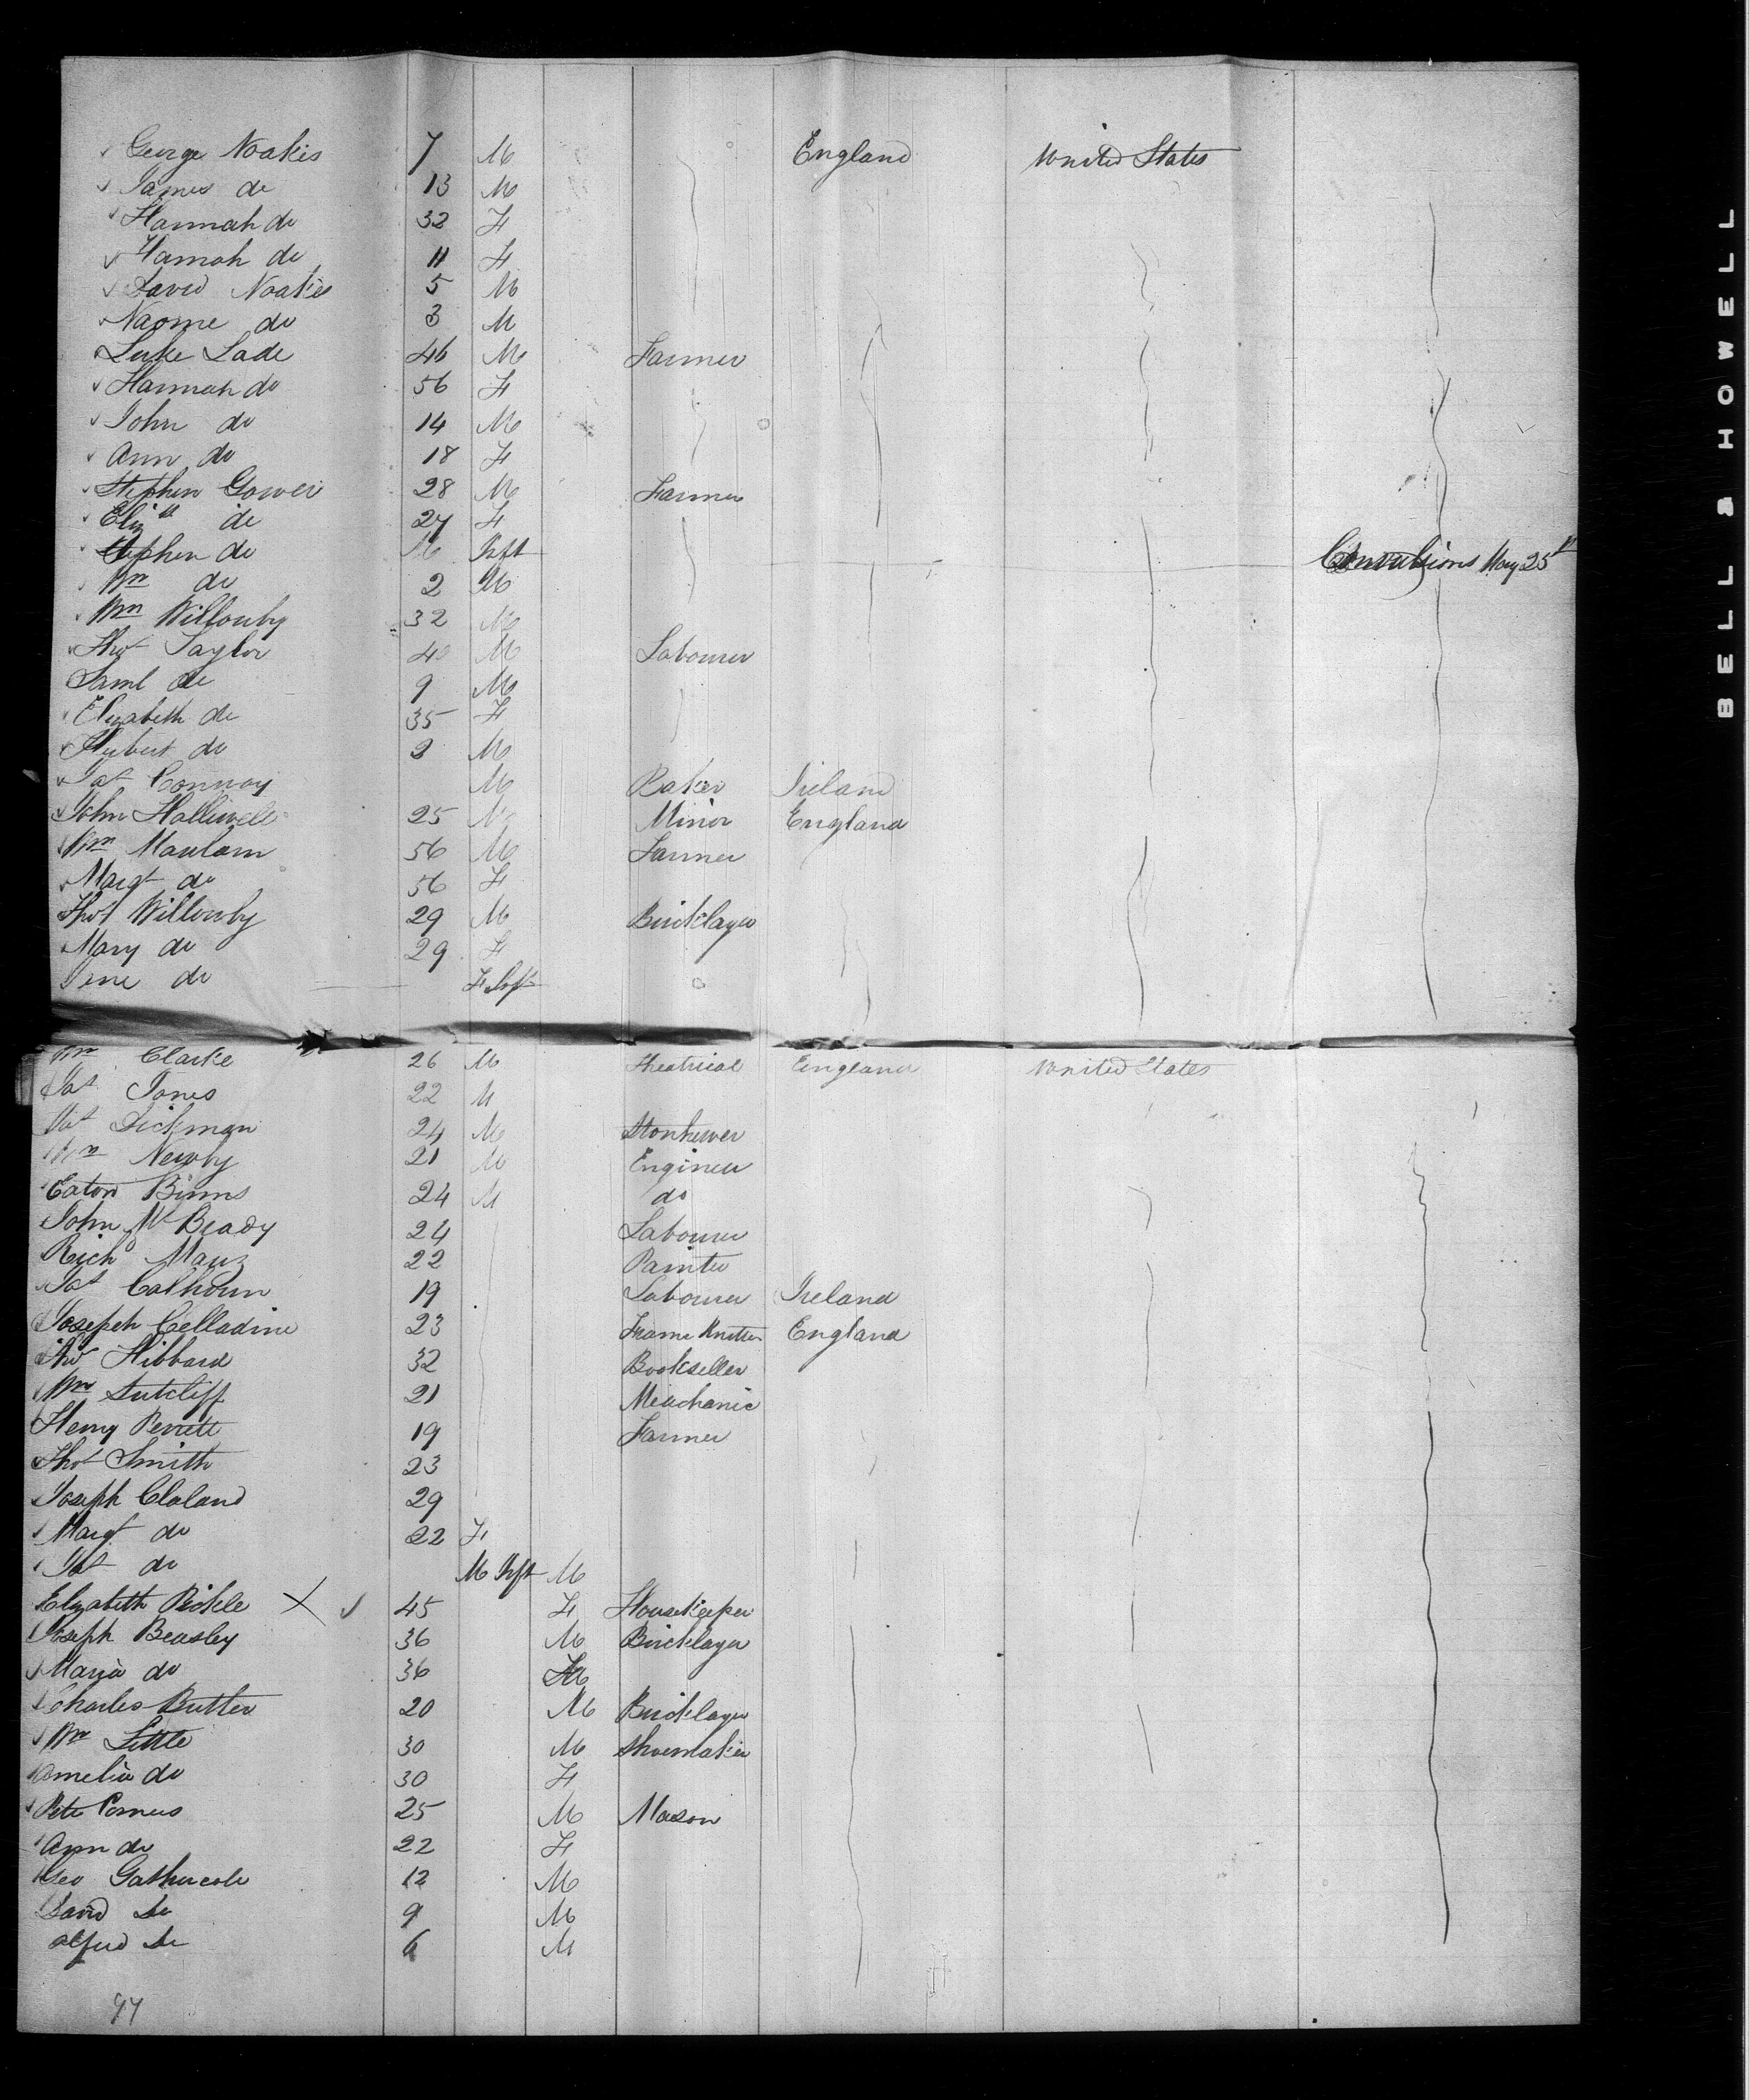 George Noakis 7 M England United States
James do 13 M
Hannah do 32 F
Hannah do 11 F
David Noakis 5 M
Naome do 3 M
Luke Lade 46 M Farmer
Hannah do 56 F
John do 14 M
Ann do 18 F
Stephen Gower 28 M Farmer
Eliz th do 27 F
Stephen do M Inft Convulsions May 25th
Wm do 2 M
Wm Willouby 32 M
Thos Taylor 40 M Labourer
Saml do 9 M
Elizabeth do 35 F
Hubert do 2 M
Pat Conway M Baker Ireland
John Halliwell 25 M Minor England
Wm Maulam 56 M Farmer
Margt do 56 F
Thos Willouby 29 M Bricklayer
Mary do 29 F
do F Inft
Wm Clarke 26 M Theatrical England United States
Jas Jones 22 M
Dickman 24 M Stonhewer
Wm Newby 21 M Engineer
Eaton Binns 24 M do
John McBeady 24 Labourer
Richd 22 Painter
Calhoun 19 Labourer Ireland
Joseph Celladine 23 Frame Knitter England
Thos Hibbard 32 Bookseller
Wm Sutcliff 21 Meachanic
Henry Perrett 19 Farmer
Thos Smith 23
Joseph Claland 29
Margt do 22 F
Jas do M Inft M
Elizabeth Pickle X 45 F Housekeeper
Joseph Beasley 36 M Bricklayer
Maria do 36 F
Charles Butler 20 M Bricklayer
Wm Little 30 M Shoemaker
Amelia do 30 F
Pete 25 M Mason
Ann do 22 F
Geo Gathercole 12 M
David Do 9 M
Alfred Do 6 M
97
BELL & HOWELL